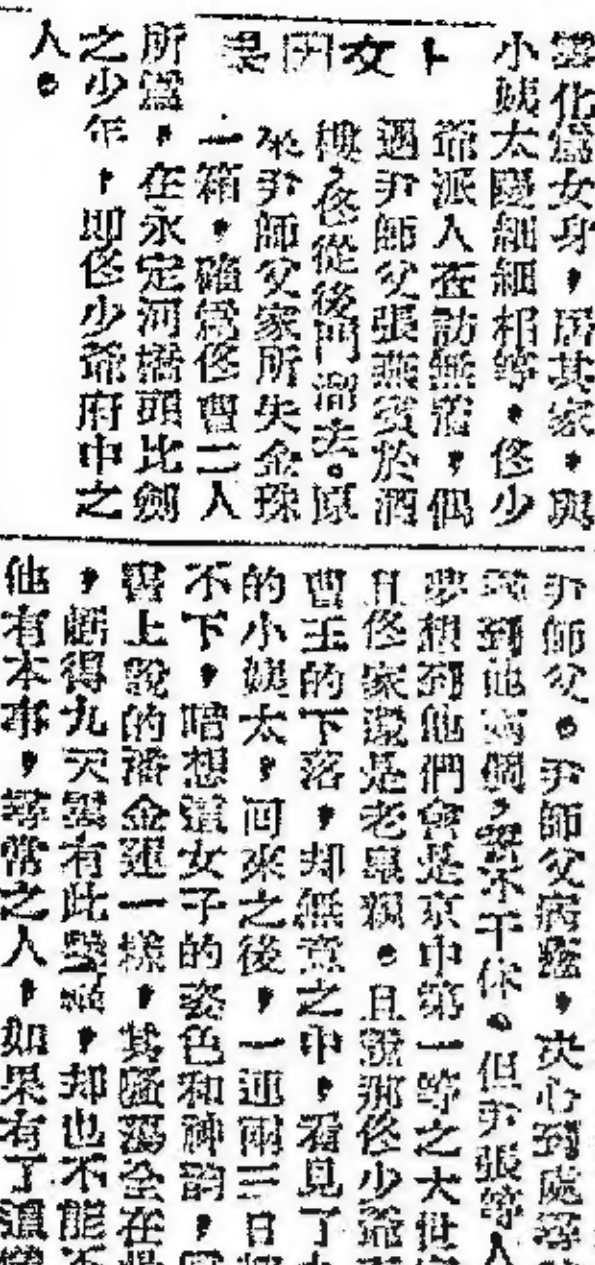 雲化為女身，居其家，與
小姨太陸細細相等，佟少
爺派人查訪無着，偶
遇尹師父張燕賓於酒
樓，佟從後門溜去。原
來尹師父家所失金珠
一箱，確為佟曹二人
所為，在永定河橋頭比劍
之少年，即佟少爺府中之
人。
卜女因果
尹師父。尹師父病癒，決心到處尋
到他兩個，誓不干休。但尹張等人
夢想到他們會是京中第一等之大世
且佟家還是老親。且說那佟少爺
曹王的下落，却無意之中，看見了
的小姨太，回來之後，一連兩三日
不下，暗想這女子的姿色和神韻，
書上說的潘金蓮一樣，其騷蕩全在
，虧得九天雲有此，却也不能不
他有本事，尋常之人，如果有了這